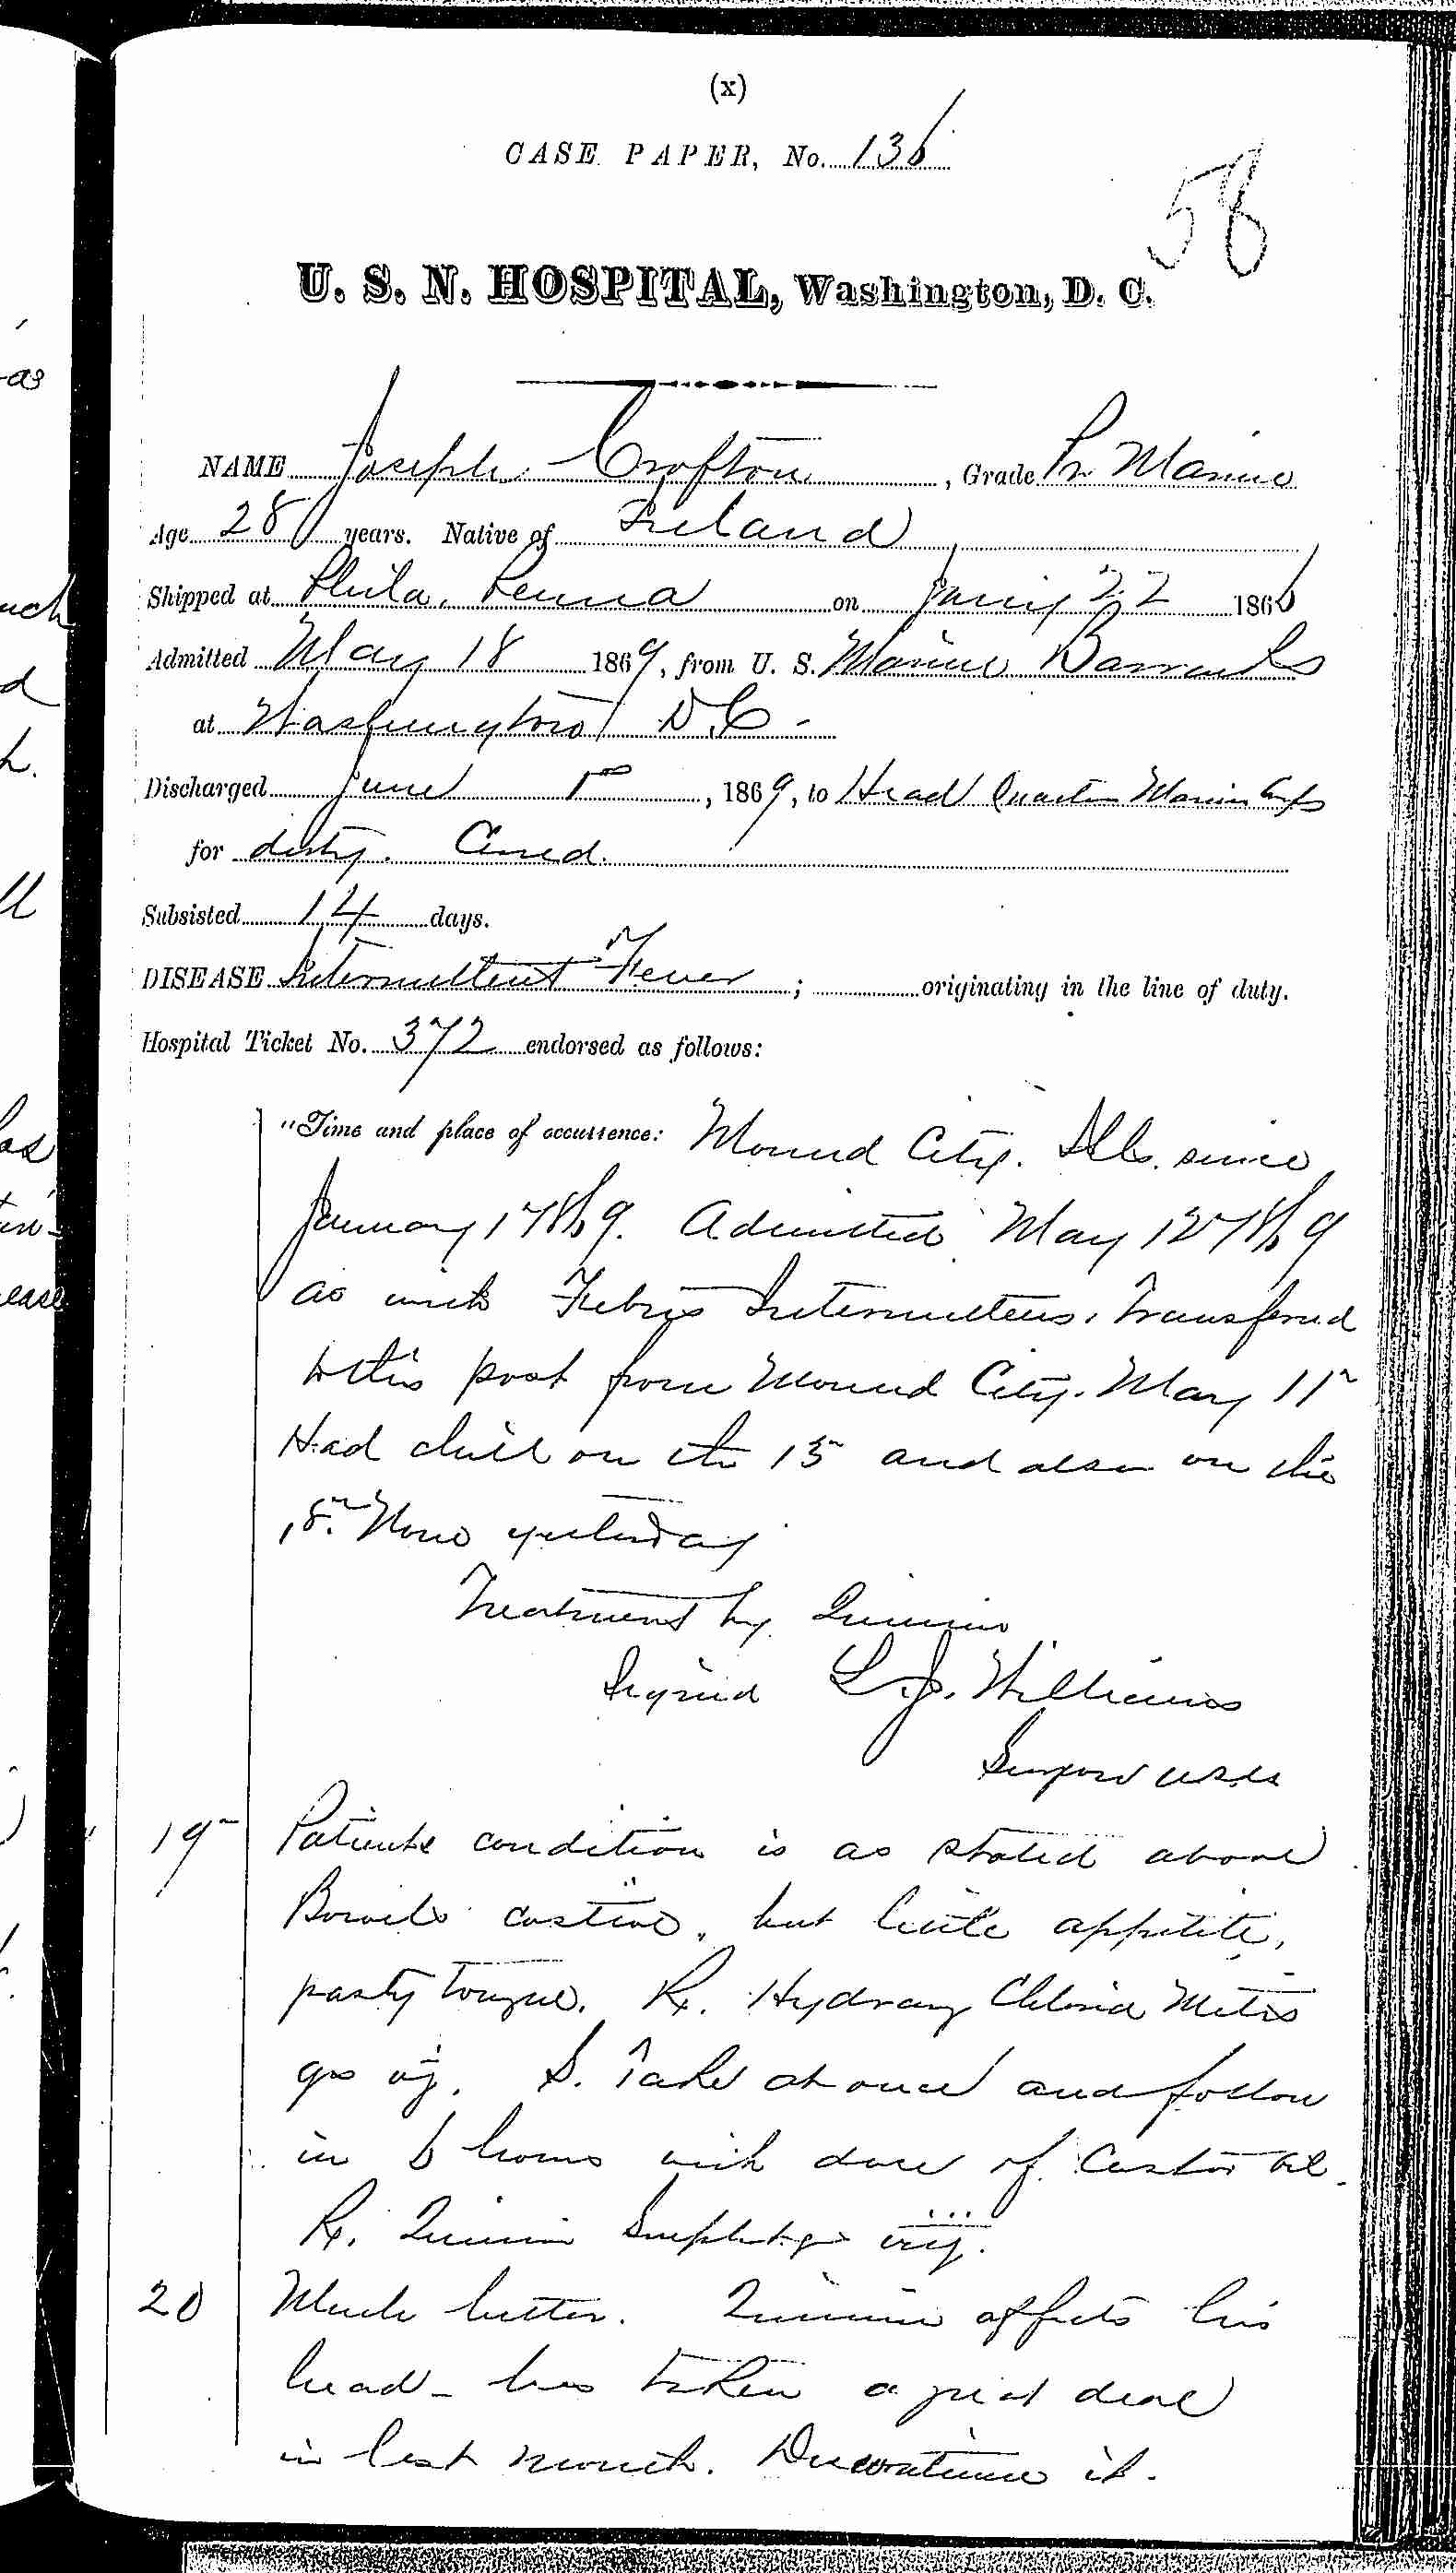 (x)
CASE PAPER, No. 136
58
U. S. N. HOSPITAL, Washington, D. C.
NAME Joseph Crofton, Grade Pr. Marine
Age 28 years. Native of Ireland
Shipped at Phila. Penna on Jany 22 1866
Admitted May 18 1869, from U. S. Marine Barracks
at Washington D.C.
Discharged June 1st, 1869, to Head Quarters Marine Corps
for duty. Cured.
Subsisted 14 days.
DISEASE Intermittent Fever; originating in the line of duty.
Hospital Ticket No. 372 endorsed as follows:
"Time and place of occurrence: Mound City. Ills. since
January 1869. Admitted May 1869
as with Febris Intermittens. Transferred
to this post from Mound City. May 11"
Had chill on the 15" and also on the
None yesterday
Treatment by Quinine
Signed L. J. Williams
Surgeon USN
19" Patients condition is as stated above
Bowels costive, but little appetite,
pasty tongue. Rx. Hydrarg Chlorid Mitis
grs S. Take at once and follow
in 6 hours with dose of Castor oil.
Rx. Quinin Sulphat gr
20 Much better. Quinine affects his
head - has taken a great deal
in last month. Discontinue it.